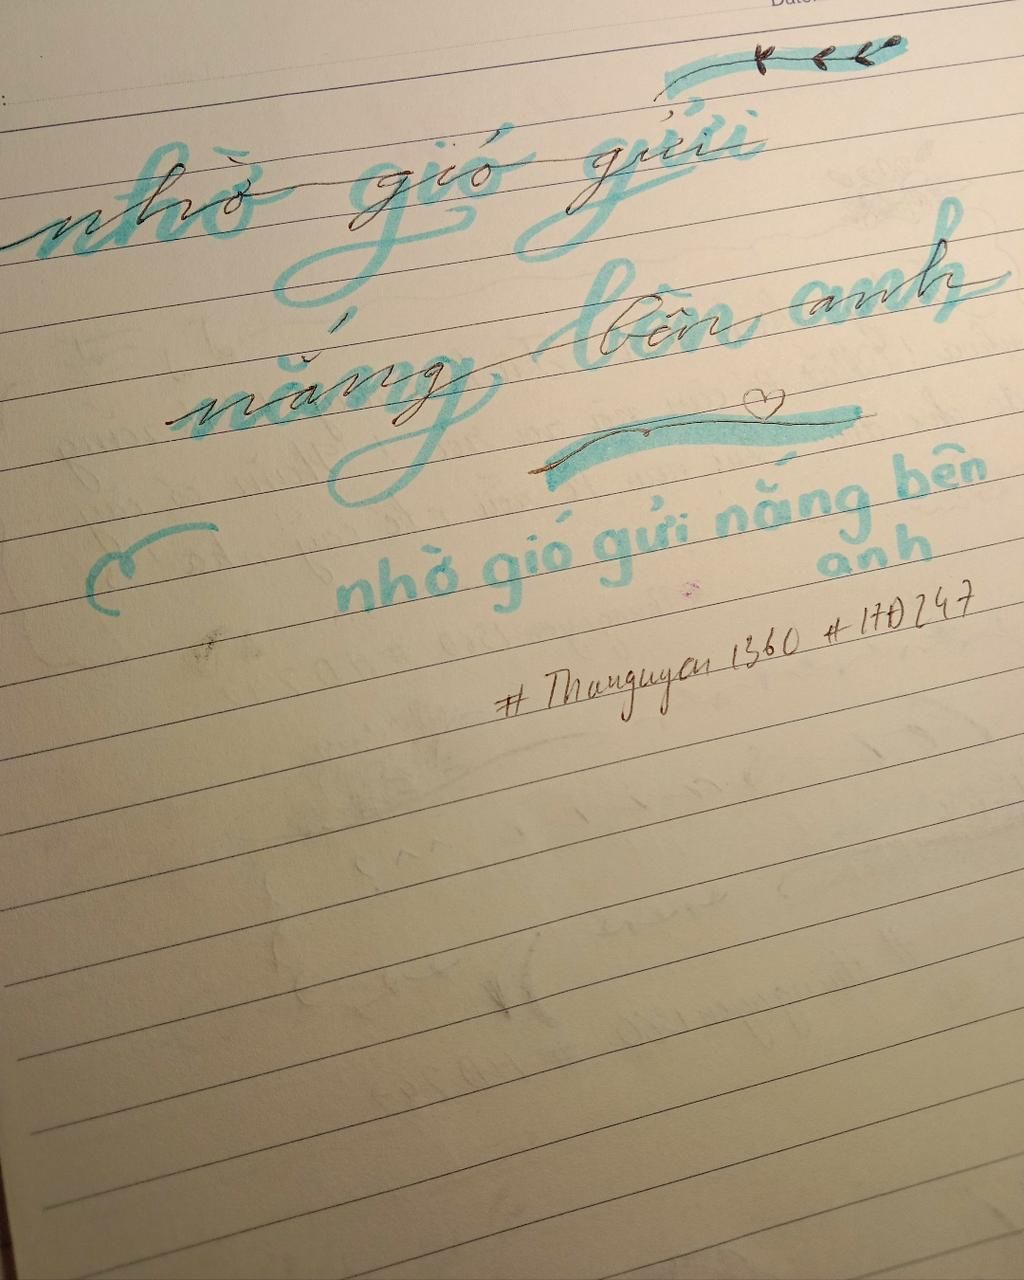 nhờ gió gửi
nắng bên anh
nhờ gió gửi nắng bên
anh
# Thunguyen 1360 # HD247